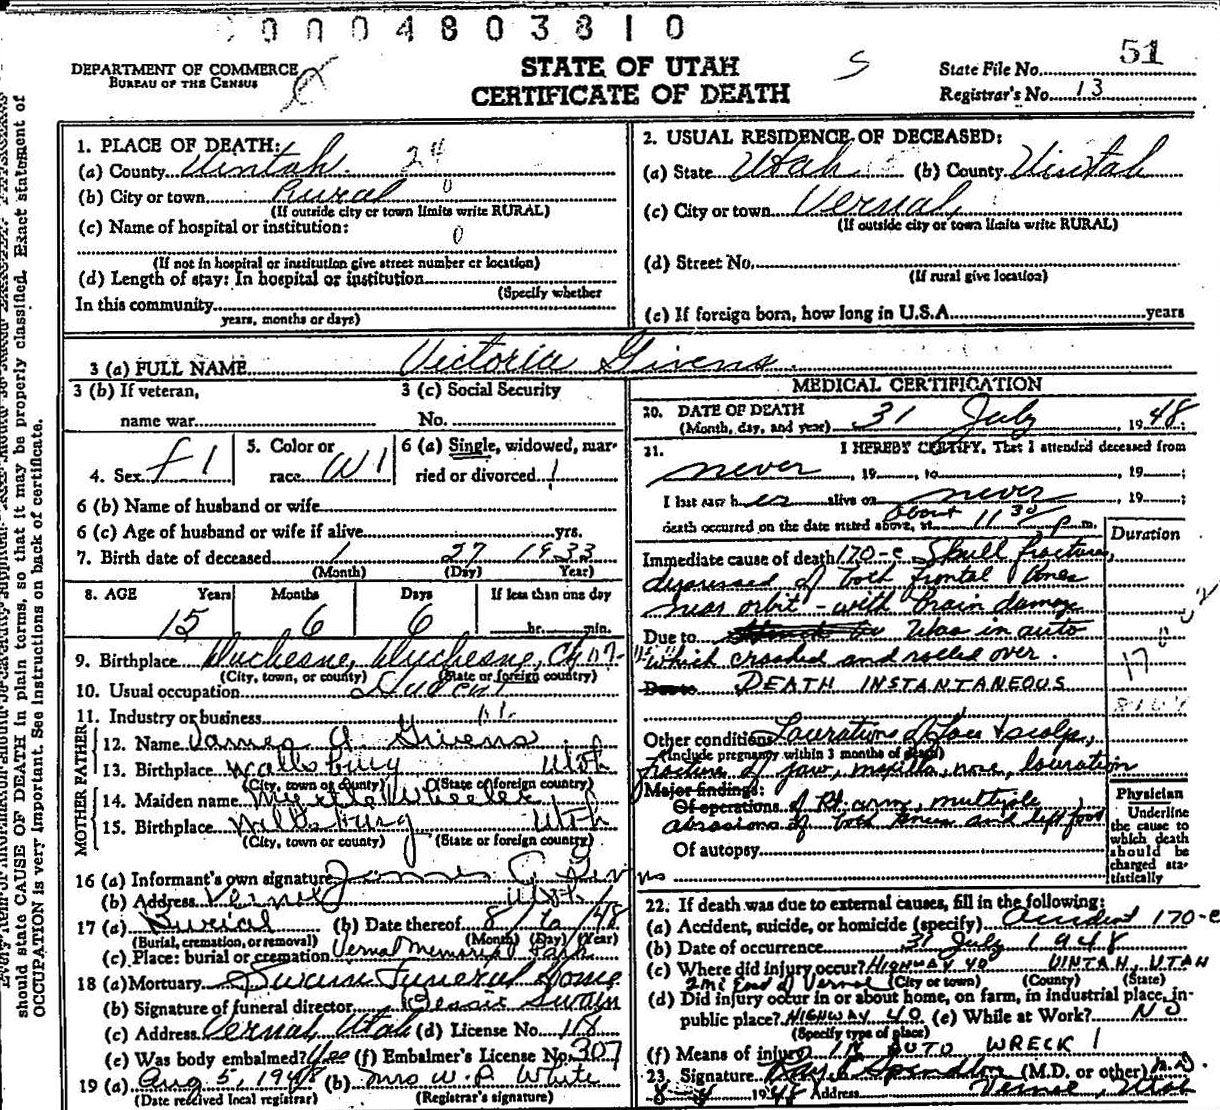 0004803810
DEPARTMENT OF COMMERCE
BUREAU OF THE CENSUS
STATE OF UTAH
CERTIFICATE OF DEATH
S
State File No. 51
Registrar's No. 13
should state CAUSE OF DEATH in plain terms, so that it may be properly classified. Exact statement of
OCCUPATION is very important. See instructions on back of certificate.
1. PLACE OF DEATH:
(a) County Uintah 24
(b) City or town Rural 0
(If outside city or town limits write RURAL)
(c) Name of hospital or institution: 0
(If not in hospital or institution give street number or location)
(d) Length of stay: In hospital or institution
(Specify whether
In this community
years, months or days)
2. USUAL RESIDENCE OF DECEASED:
(a) State Utah (b) County Uintah
(c) City or town Vernal
(If outside city or town limits write RURAL)
(d) Street No.
(If rural give location)
(e) If foreign born, how long in U.S.A. years
3 (a) FULL NAME Victoria Givens
3 (b) If veteran,
name war
3 (c) Social Security
No.
4. Sex f 1
5. Color or
race W 1
6 (a) Single, widowed, mar-
ried or divorced 1
6 (b) Name of husband or wife
6 (c) Age of husband or wife if alive yrs.
7. Birth date of deceased 1 27 1933
(Month) (Day) Year)
8. AGE Years Months Days If less than one day
15 6 6 hr. min.
9. Birthplace Duchesne, Duchesne,
(City, town, or county) (State or foreign country)
10. Usual occupation Student
11. Industry or business
FATHER
12. Name James A. Givens
13. Birthplace Wallsburg Utah
(City, town or county) (State or foreign country)
MOTHER
14. Maiden name Myrtle Wheeler
15. Birthplace Wallsburg Utah
(City, town or county) (State or foreign country)
16 (a) Informant's own signature James
(b) Address Vernal Utah
17 (a) Burial (b) Date thereof 8/ /48
(Burial, cremation, or removal) (Month) (Day) (Year)
(c) Place: burial or cremation Vernal Memorial Park
18 (a) Mortuary Swain Funeral Home
(b) Signature of funeral director Bessie Swain
(c) Address Vernal Utah (d) License No. 118
(e) Was body embalmed? Yes (f) Embalmer's License No. 307
19 (a) Aug 5, 1948 (b) Mrs W. P. White
(Date received local registrar) (Registrar's signature)
MEDICAL CERTIFICATION
20. DATE OF DEATH
(Month, day, and year) 31 July 1948;
21. I HEREBY CERTIFY, That I attended deceased from
never, 19 , to , 19 ;
I last saw her alive on never, 19 ;
death occurred on the date stated above, at about 11 30 p m.
Duration
Immediate cause of death 170-c Skull fracture,
depressed of both frontal bones
near orbit - with brain damage
Due to Was in auto
which crashed and rolled over.
Due to DEATH INSTANTANEOUS
Other conditions Lacerations of face & scalp,
(Include pregnancy within 3 months of death)
fracture of jaw, maxilla, nose, laceration
Major findings:
Of operations of Rt. arm, multiple
abrasions of both knees and left foot
Of autopsy
Physician
Underline
the cause to
which death
should be
charged sta-
tistically
22. If death was due to external causes, fill in the following:
(a) Accident, suicide, or homicide (specify) Accident 170-c
(b) Date of occurrence 31 July 1948
(c) Where did injury occur? HIGHWAY 40 UINTAH, UTAH
2 mi East of Vernal (City or town) (County) (State)
(d) Did injury occur in or about home, on farm, in industrial place, in
public place? HIGHWAY 40 (e) While at Work? NO
(Specify type of place)
(f) Means of injury IN AUTO WRECK 1
23. Signature Ray Spendlove (M.D. or other) M.D.
8-4 1948 Address Vernal, Utah